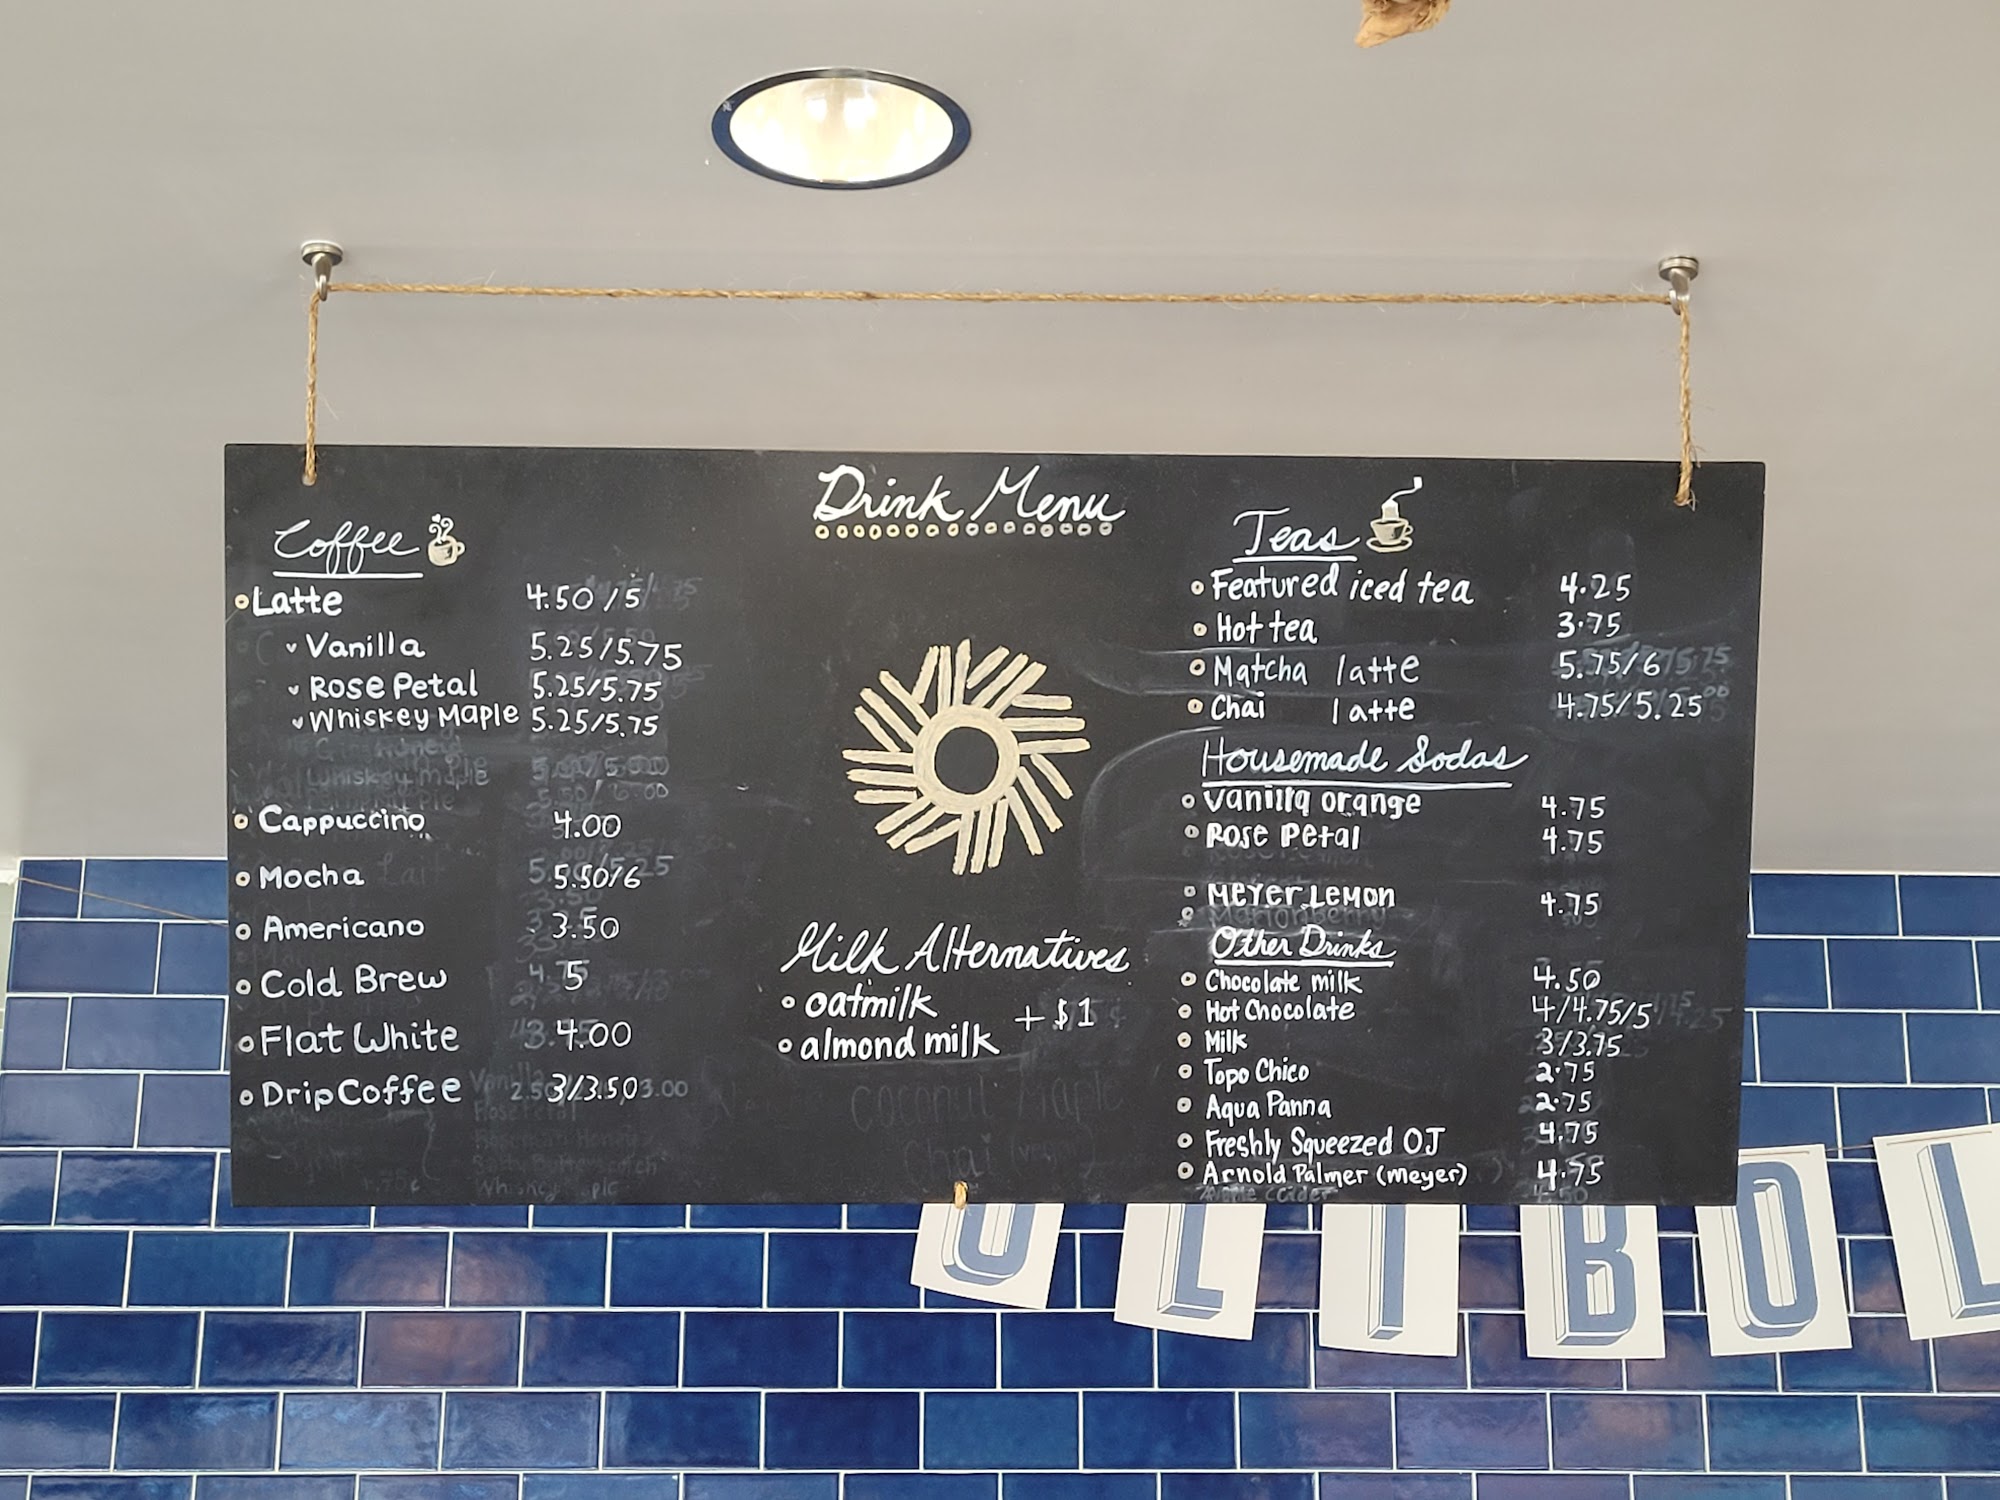 Drink Menu
Coffee
Latte 4.50/5
Vanilla 5.25/5.75
Rose Petal 5.25/5.75
Whiskey Maple 5.25/5.75
Whiskey Maple
Cappuccino 4.00
Mocha 5.50/6
Americano 3.50
Cold Brew 5
Flat White 4.00
Drip Coffee 3/3.50
Milk Alternatives
oatmilk
+ $1
almond milk
Coconut Maple
Chai (vegan)
Teas
Featured iced tea 4.25
Hot tea 3.75
Matcha latte 5.75/6
Chai latte 4.75/5.25
Housemade Sodas
Vanilla orange 4.75
Rose Petal 4.75
Meyer Lemon 4.75
Marionberry
Other Drinks
Chocolate milk 4.50
Hot Chocolate 4/4.75/5
Milk 3/3.75
Topo Chico 2.75
Aqua Panna 2.75
Freshly Squeezed OJ 4.75
Arnold Palmer (Meyer) 4.75
Apple Cider 4.50
OLIBOL